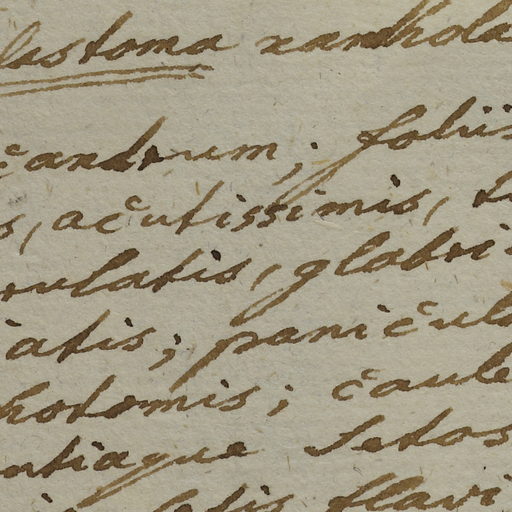 lastoma xantholas
candrum; foliis
s, acutissimis,
rulatis, glabri
iatis; panicul
hotomis; caule
ntiaque setos
latis flavi